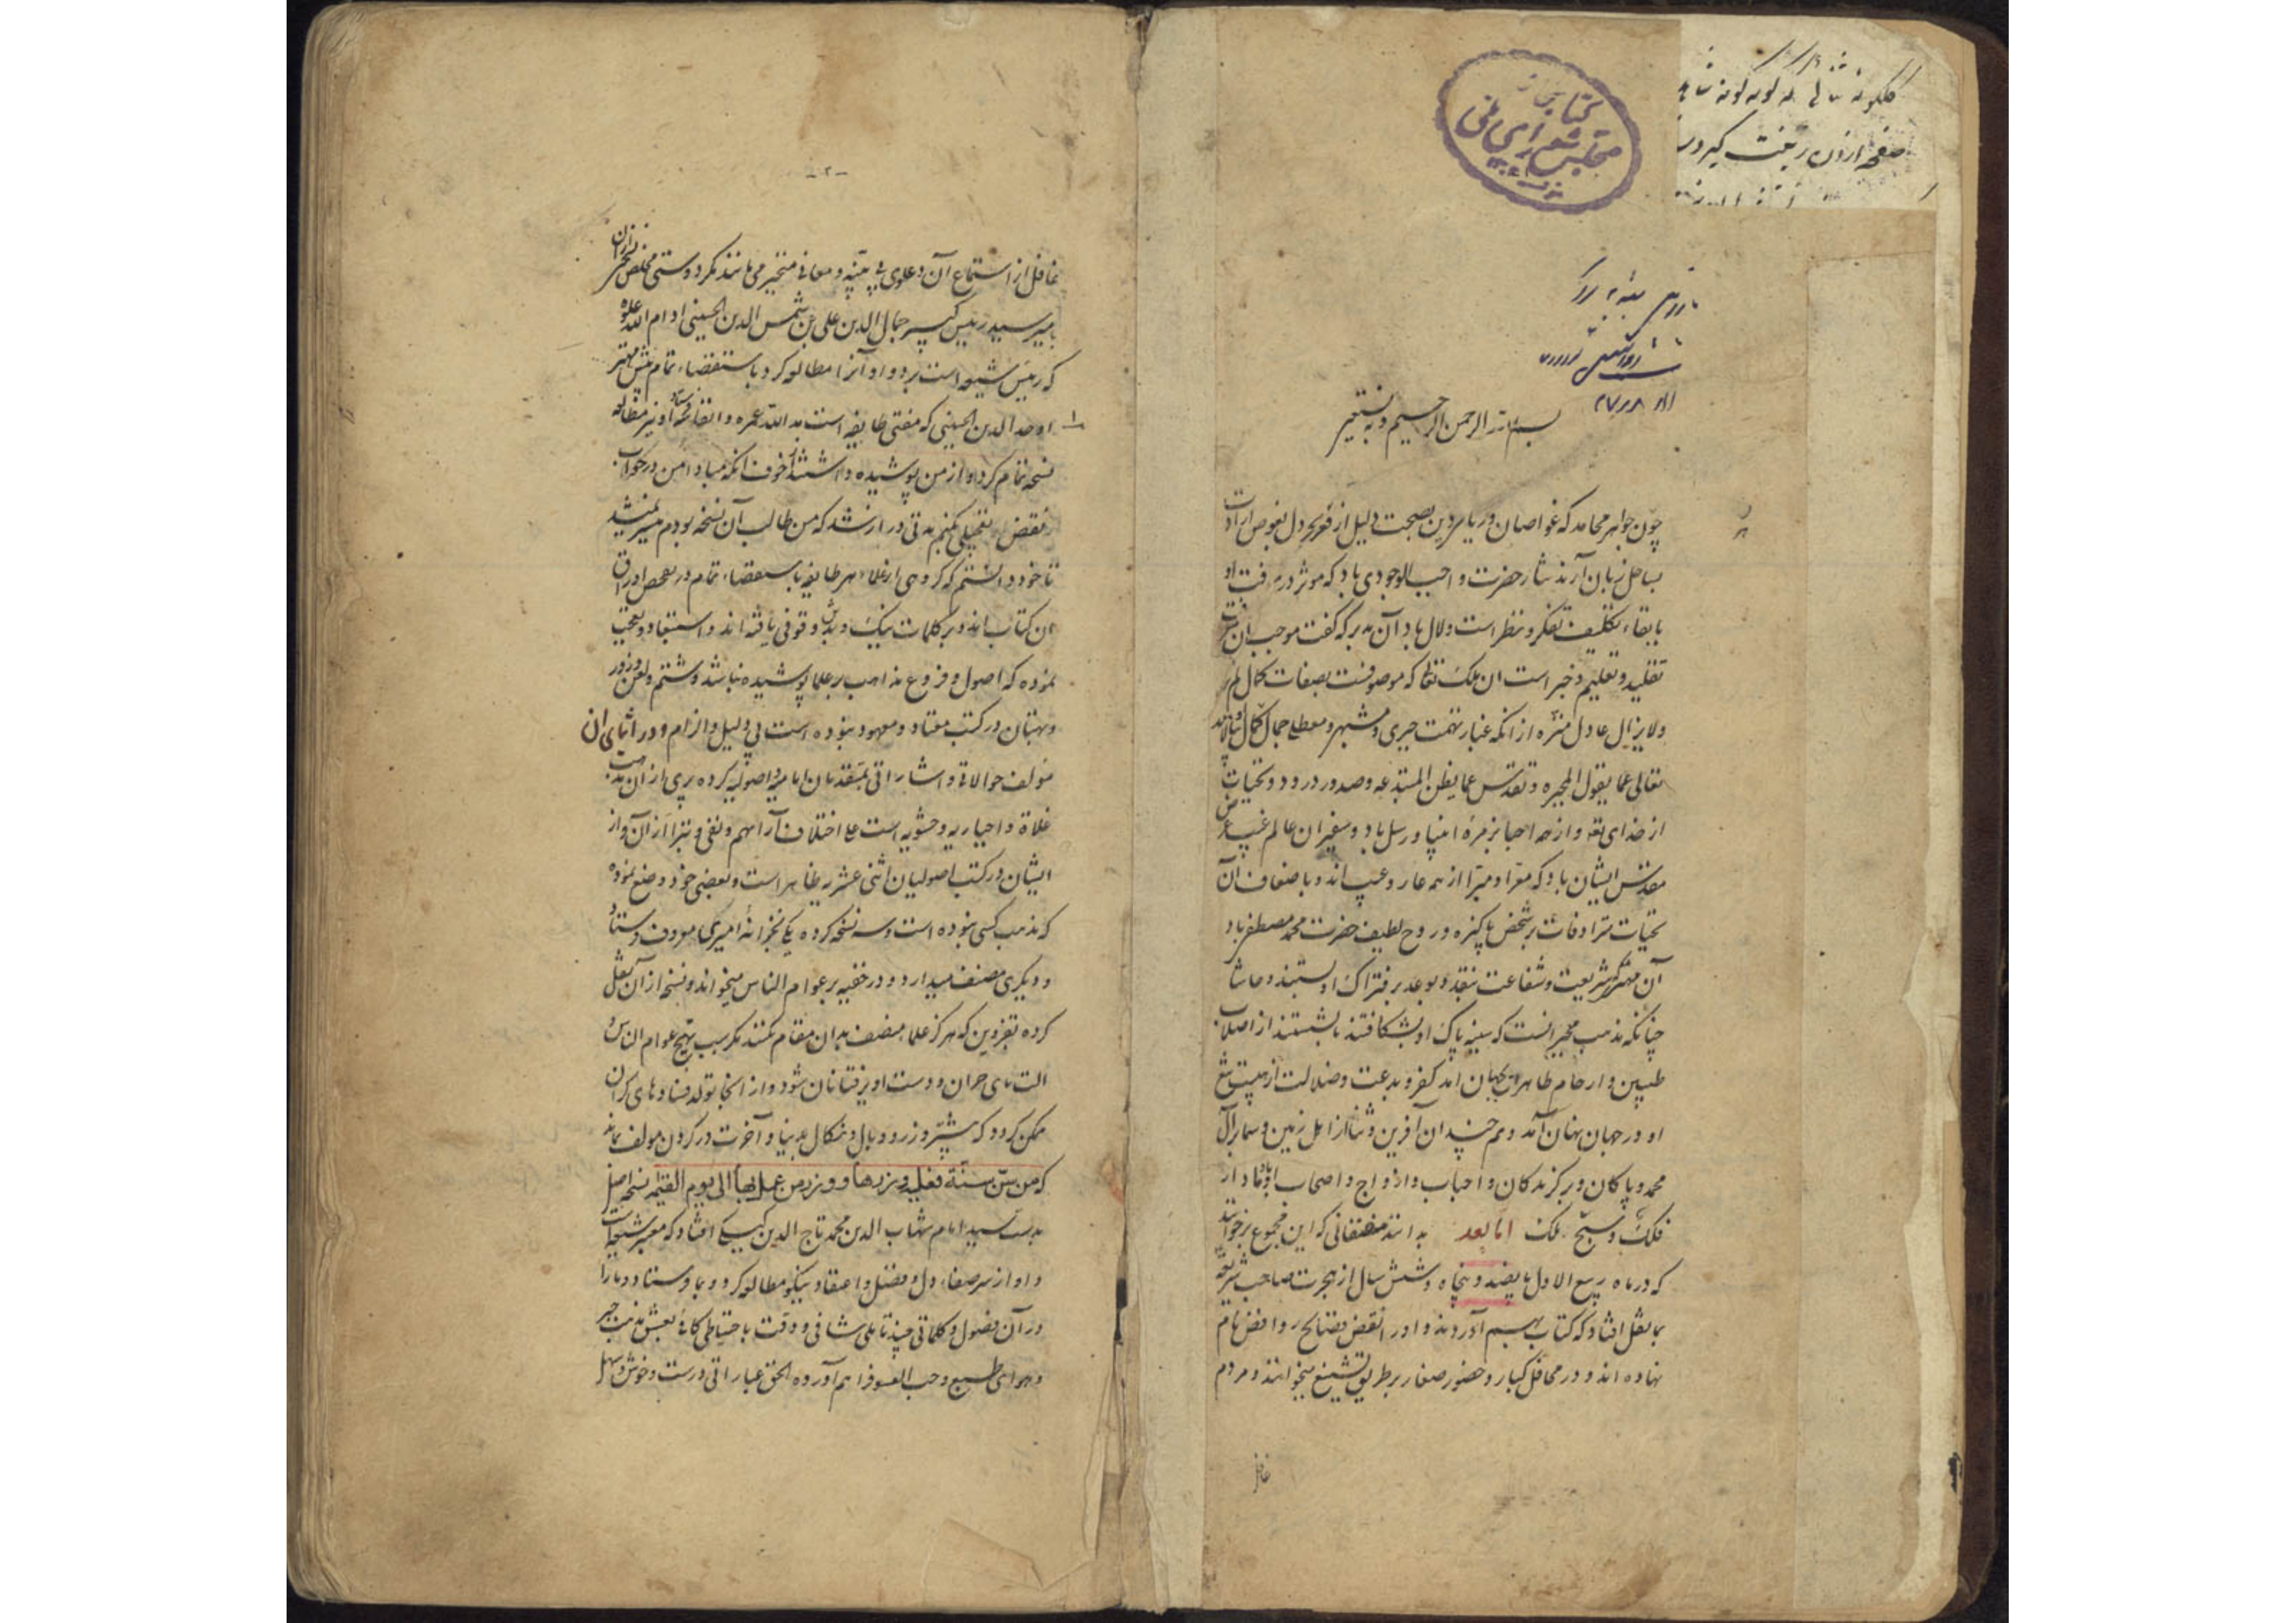 کتابخانه
مجلس شورای ملی
بسم الله الرحمن الرحیم و به نستعین
چون جواهر محامد که غواصان دریای دین بصحت دلیل از قعر بحر دل بغوص ارادت
بساحل زبان آرند نثار حضرت واجب الوجودی باد که موثر در معرفت او
بابقاء تکلیف تفکر و نظر است ولال باد آن مدبر که گفت موجب آن
تقلید و تعلیم و خبر است ان ملک تعالی که موصوفست بصفات کمال لم یزل
ولایزال عادل منزه از انکه غبار تهمت جبری و مشبهی و معطلی بجمال کمال
تعالی عما یقول المجبره و تقدس عما یظن المبتدعه و صدور درود و تحیات
از خدای تعالی و از همه احبا بر زمرهٔ انبیا و رسل باد و سفیران عالم غیب
مقدس ایشان باد که معرا و مبرا از همه عار و عیب اند و باضعاف آن
تحیات مترادفات بر شخص پاکیزه و روح لطیف حضرت محمد مصطفی باد
آن مهتر که شریعت و شفاعت بنقد و بوعد بر فتراک او بستند و حاشا
چنانکه مذهب مجبرانست که سینه پاک او بشکافتند یا بشستند از اصلاب
طیبین و ارحام طاهرین بجهان امد کفر و بدعت و ضلالت از هیبت تیغ
او در جهان نهان آمد و هم چندان آفرین و ثنا از اهل زمین و سما بر آل
محمد و پاکان و برگزیدگان و احباب و ازواج و اصحاب او باد مادار
فلک و سبح ملک اما بعد بدانند منصفانی که این مجموع برخوانند
که در ماه ربیع الاول پانصد و پنجاه و شش سال از هجرت صاحب شریعت
بما نقل افتاد که کتابی بهم آوردند و اورا نقض فضایح روافض نام
نهاده اند و در محافل کبار و حضور صغار بر طریق تشنیع میخوانند و مردم
غافل
-۲-
غافل از استماع آن دعاوی بی بینه و معانی متحیر می مانند مگر دوستی مخلص نسخه ازان
بامیر سید رئیس کبیر جمال الدین علی بن شمس الدین الحسینی ادام الله علوه
که رئیس شیعه است برد و او آنرا مطالعه کرد باستقضاء تمام پیش مهتر
اوحد الدین الحسینی که مفتی طایفه است مد الله عمره و انفاسه فرستاد او نیز مطالعه
نسخه تمام کرد و از من پوشیده داشتند از خوف انکه مبادا من در جواب
و نقض تعجیلی بکنم مدتی دراز شد که من طالب آن نسخه بودم میسر نمیشد
تا خود دانستم که گروهی از علماء هر طایفه باستقصاء تمام در تفحص اوراق
ان کتاب اند و بر کلمات نیک و بدش وقوفی یافته اند و استبعاد و تعجب
نموده که اصول و فروع مذاهب بر علما پوشیده نباشد و شتم و لعن و زور
و بهتان در کتب معتاد و معهود نبوده است بی دلیل و الزام و در اثنای ان
مولف حوالاتی و اشاراتی بمتقدمان امامیه اصولیه کرده بری از آن مذهب
غلاة و اخباریه و حشویه است علی اختلاف آرائهم و نفی و تبرا از آن و از
ایشان در کتب اصولیان اثنی عشریه ظاهر است و بعضی خود وضع نموده
که مذهب کسی نبوده است و سه نسخه کرده یکی بخزانهٔ امیری معروف فرستاد
و دیگری مصنف میدارد و در خفیه بر عوام الناس میخواند و نسخه از آن نقل
کرده بقزوین که هرگز علماء منصف بدان مقام نکنند مگر سبب تهیج عوام الناس و
الت بدی و دست اویز فتانان شود و از انجا تولد فسادهای گران
ممکن گردد که بیشتر وزر و وبال و نکال بدنیا و آخرت در گردن مولف بماند
که من سن سنة فعلیه وزرها و وزر من عمل بها الی یوم القیمه نسخه اصل
بدست سید امام شهاب الدین محمد تاج الدین کیسکی افتاد که معتبر شیعت است
و او از سر صفاء دل و فضل و اعتقاد نیکو مطالعه کرد و بما فرستاد و ما را
در آن فصول و کلماتی چند تأملی شافی و وقت باحتیاطی کافی بعشق مذهب جبر
و هوای طبع و حب الفسوق فراهم آورده الحق عباراتی درست و خوش و سهل